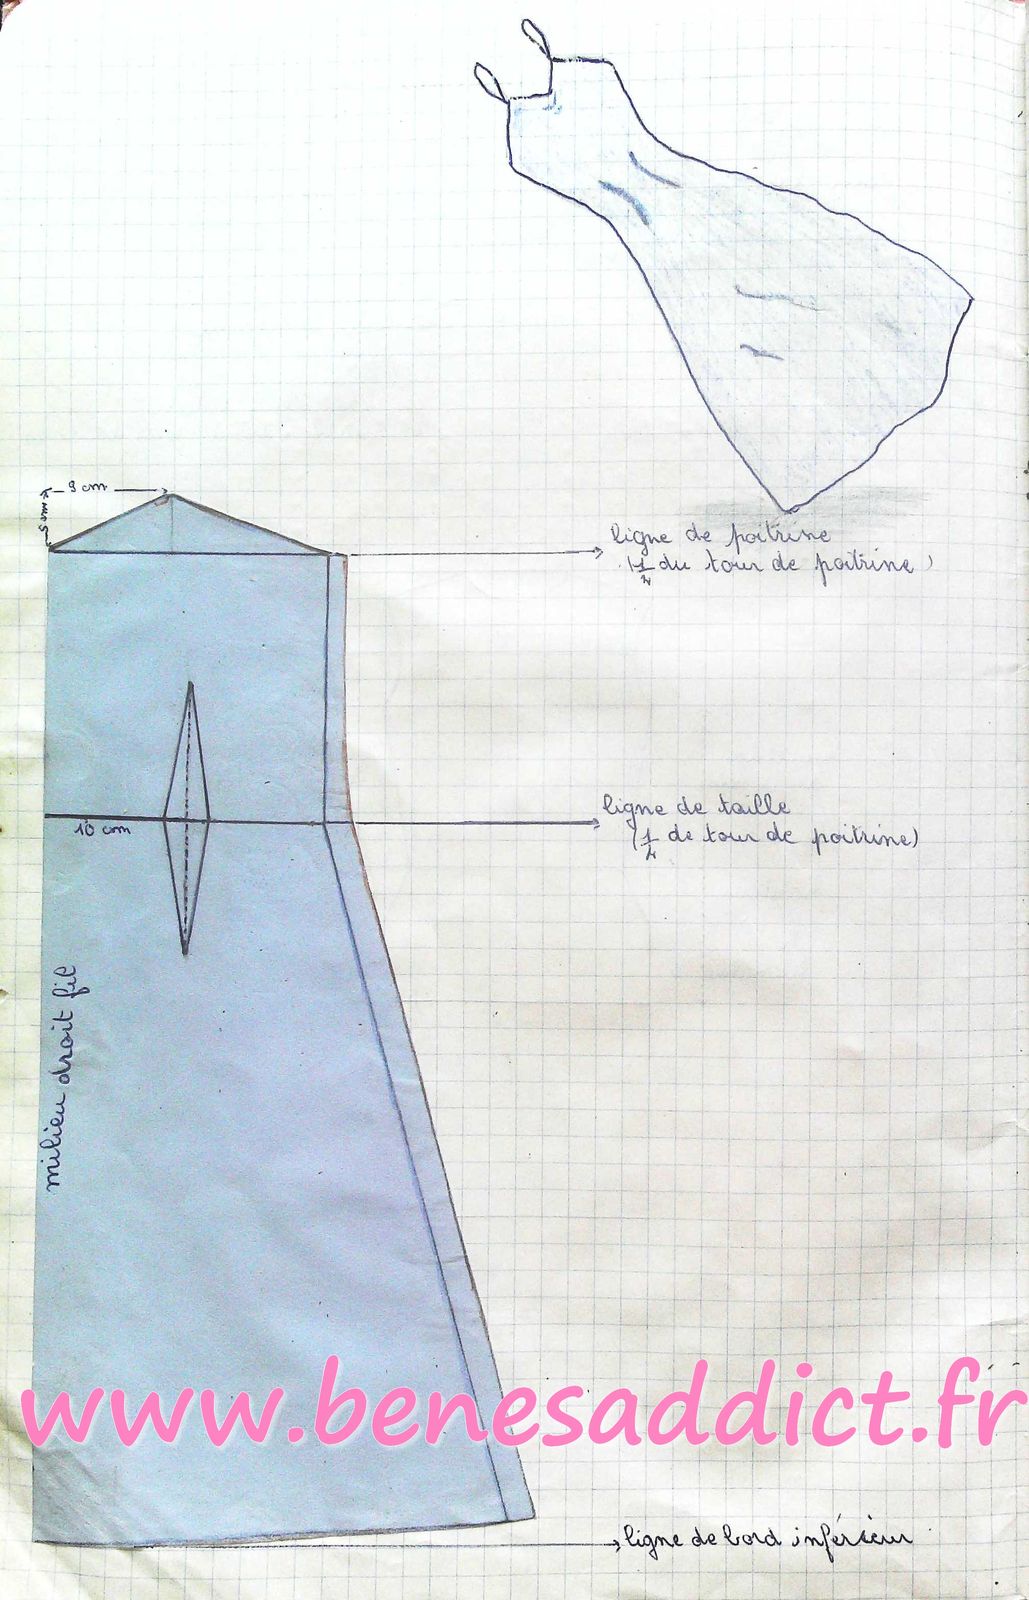 9 cm
5 cm
ligne de poitrine
(1/4 du tour de poitrine)
ligne de taille
(1/4 de tour de poitrine)
10 cm
milieu droit fil
www.benesaddict.fr
ligne de bord inférieur